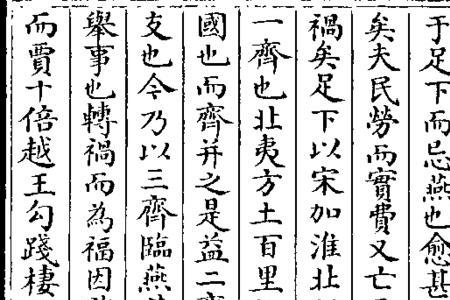 于足下而忌燕也愈甚
矣夫民勞而實費又亡
禍矣足下以宋加淮北
一齊也北夷方土百里
國也而齊并之是益二
支也今乃以三齊臨燕
舉事也轉禍而為福因
而賈十倍越王勾踐棲